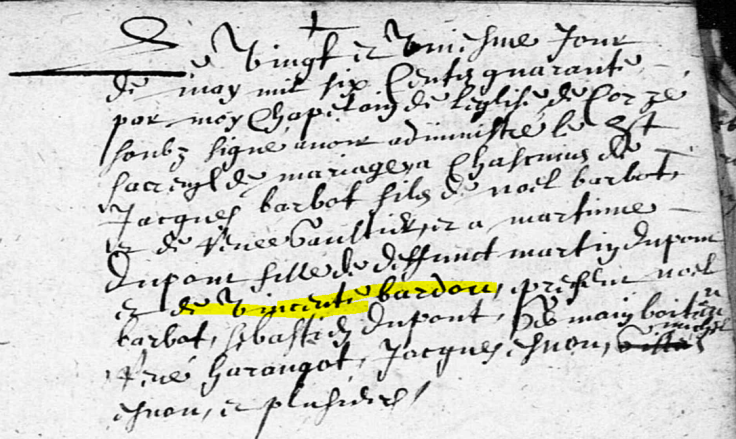 Le vingt et uniesme Jour
de may mil six centz quarante
par moy chapelain de leglise de Corzé
soubz signé avoir administré le St
sacremt de mariage a chascuns de
Jacques barbot filz de noel barbot
et de renee Gaultier, et a martinne
Dupont fille de deffunct martin dupont
et de vincente bardou, present noel
barbot, sebastien dupont,
rené harangot, Jacques esnou, michel
esnou, et plusieurs